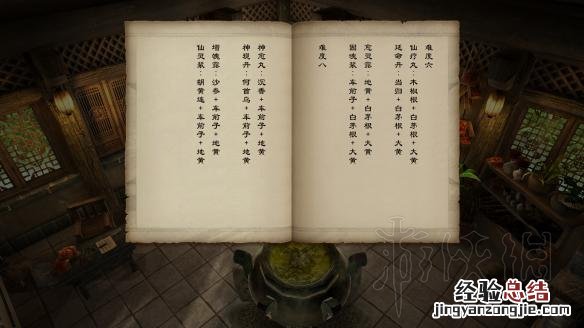 难度六
仙疗丸：木椒根＋白茅根＋大黄
延命丹：当归＋白茅根＋大黄
愈灵露：地黄＋白茅根＋大黄
固魄浆：车前子＋白茅根＋大黄
难度八
神愈丸：沉香＋车前子＋地黄
神现丹：何首乌＋车前子＋地黄
增魄露：沙参＋车前子＋地黄
仙灵浆：胡黄连＋车前子＋地黄
经验总结
jingyanzongjie.com